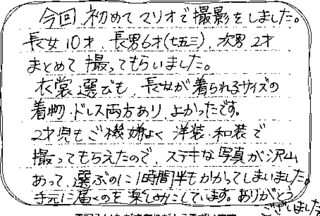 今回、初めてマリオで撮影をしました。
長女10才、長男6才(七五三)、次男2才
まとめて撮ってもらいました。
衣裳選びも、長女が着られるサイズの
着物、ドレス両方あり、よかったです。
2才児もご機嫌よく洋装、和装で
撮ってもらえたので、ステキな写真が沢山
あって、選ぶのに1時間半もかかってしまいました。
手元に届くのを楽しみにしています。ありがとう
ございました。